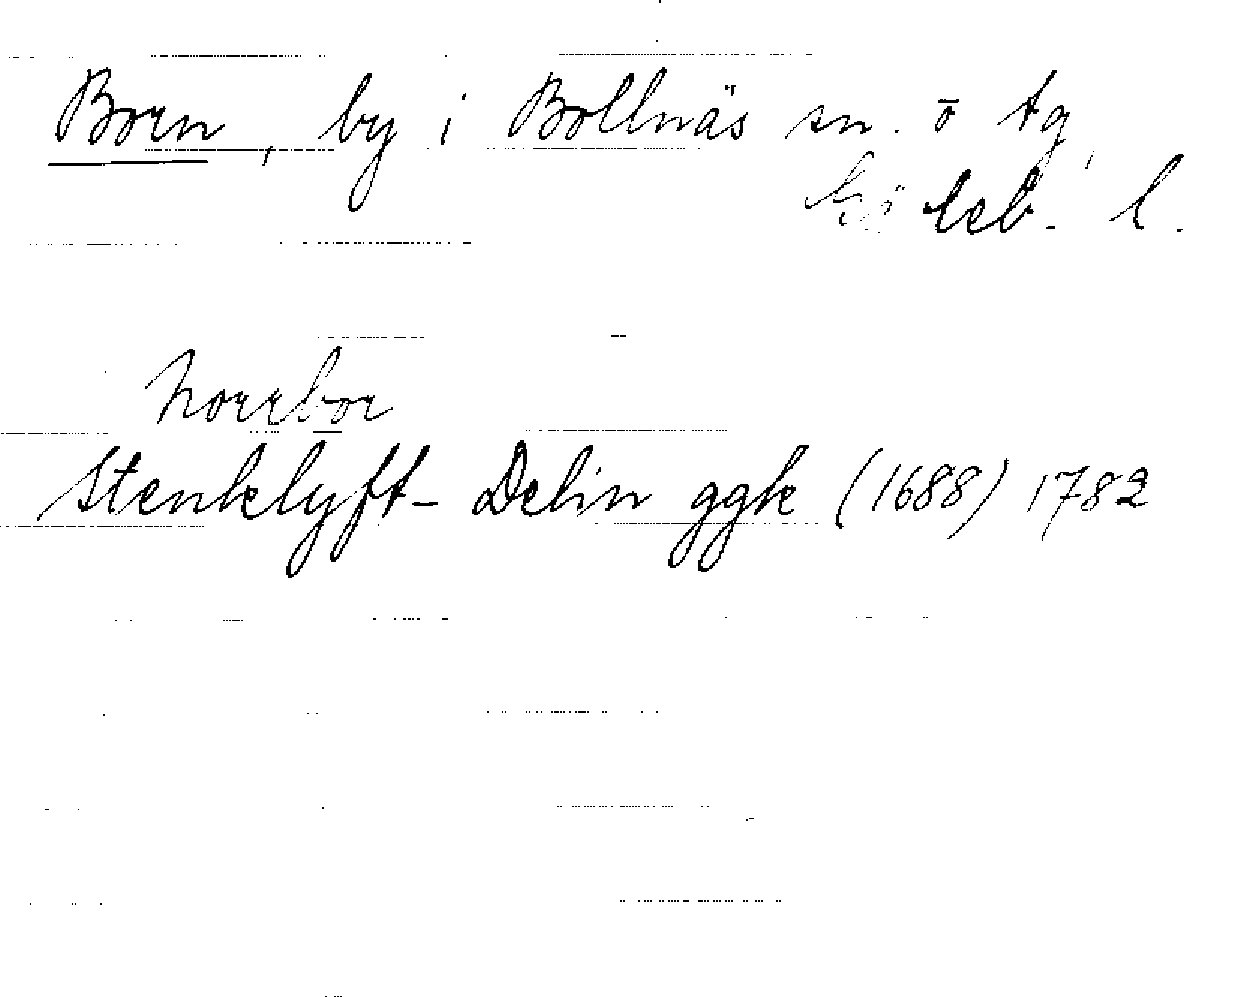 Born, by i Bollnäs sn. o tg,
Gävleb. l.
Norrbor
Stenklyft- Delin ggk (1688) 1782